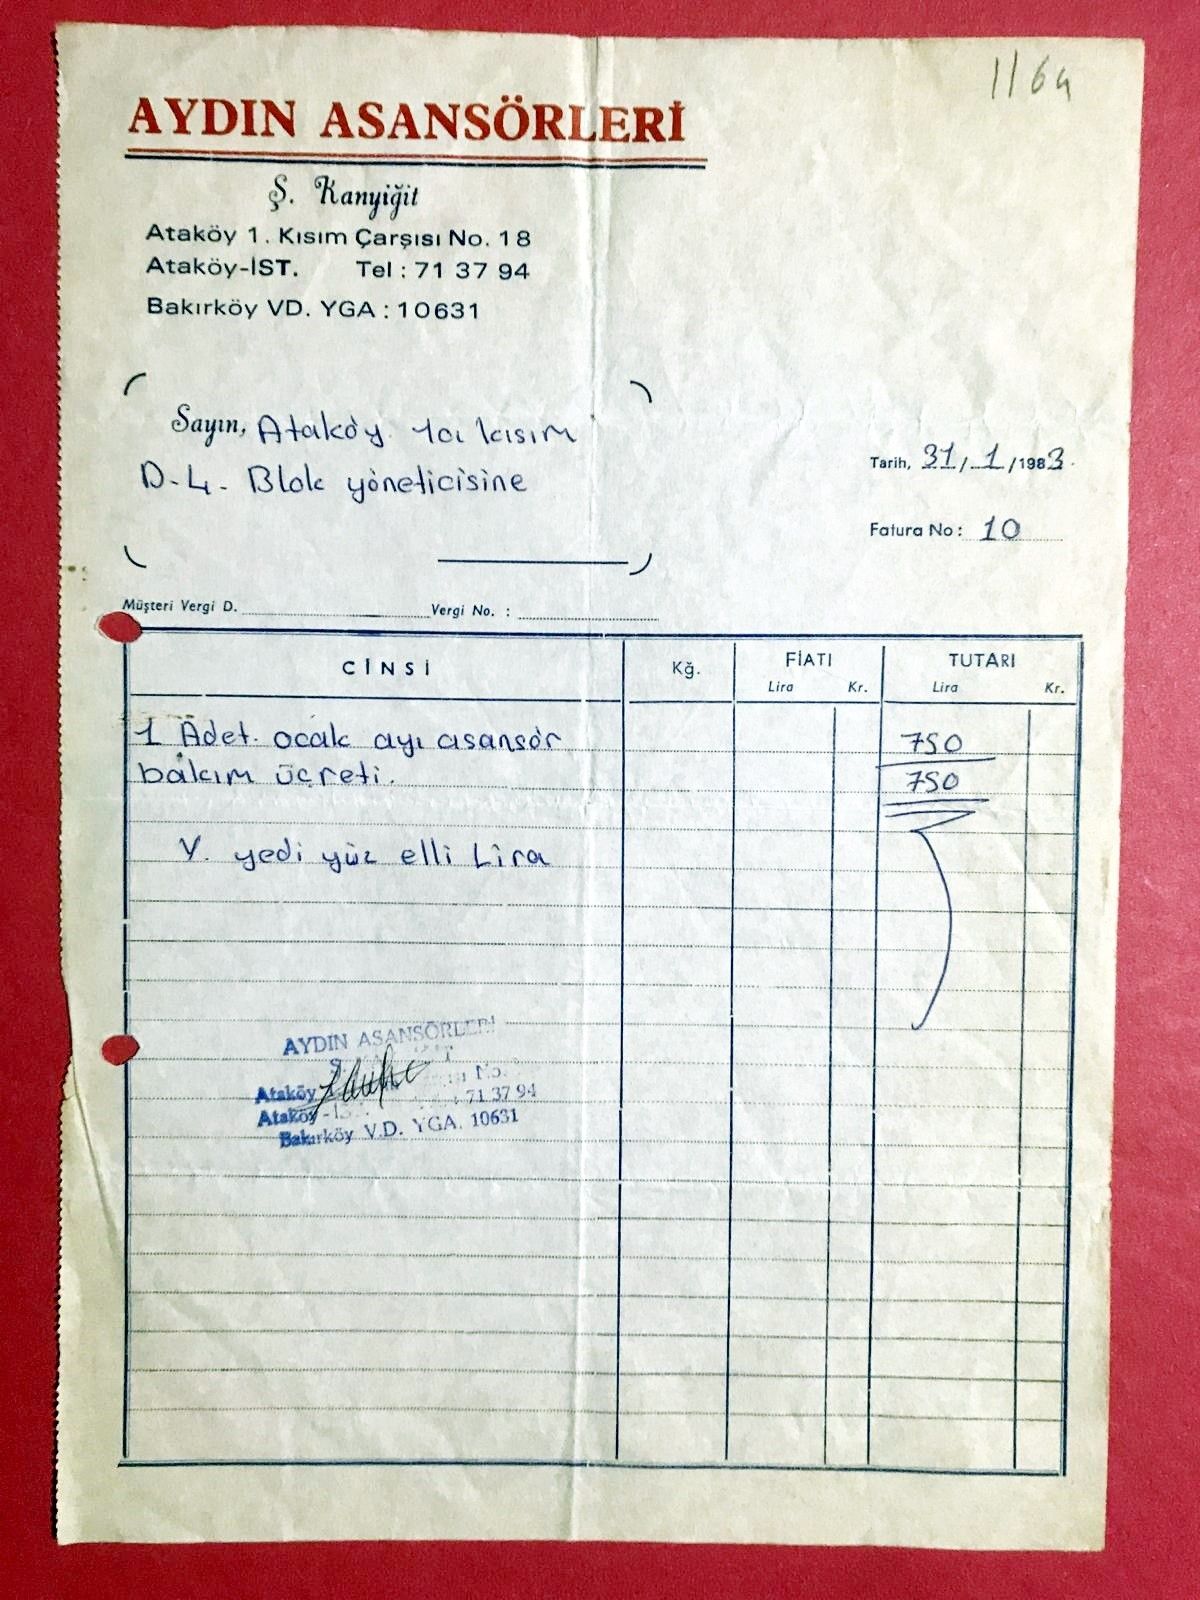 1164
AYDIN ASANSÖRLERİ
Ş. Kanyiğit
Ataköy 1. Kısım Çarşısı No. 18
Ataköy-İST. Tel : 71 37 94
Bakırköy VD. YGA : 10631
Sayın, Ataköy kısım
D-4- Blok yöneticisine
Tarih, 31/1/1983.
Fatura No: 10
Müşteri Vergi D. Vergi No. :
CİNSİ Kğ. FİATI TUTARI
Lira Kr. Lira Kr.
1 Adet. ocak ayı asansör 750
bakım ücreti. 750
Y. yedi yüz elli Lira
AYDIN ASANSÖRLERİ
Ataköy No.
Ataköy - 71 37 94
Bakırköy V.D. YGA. 10631